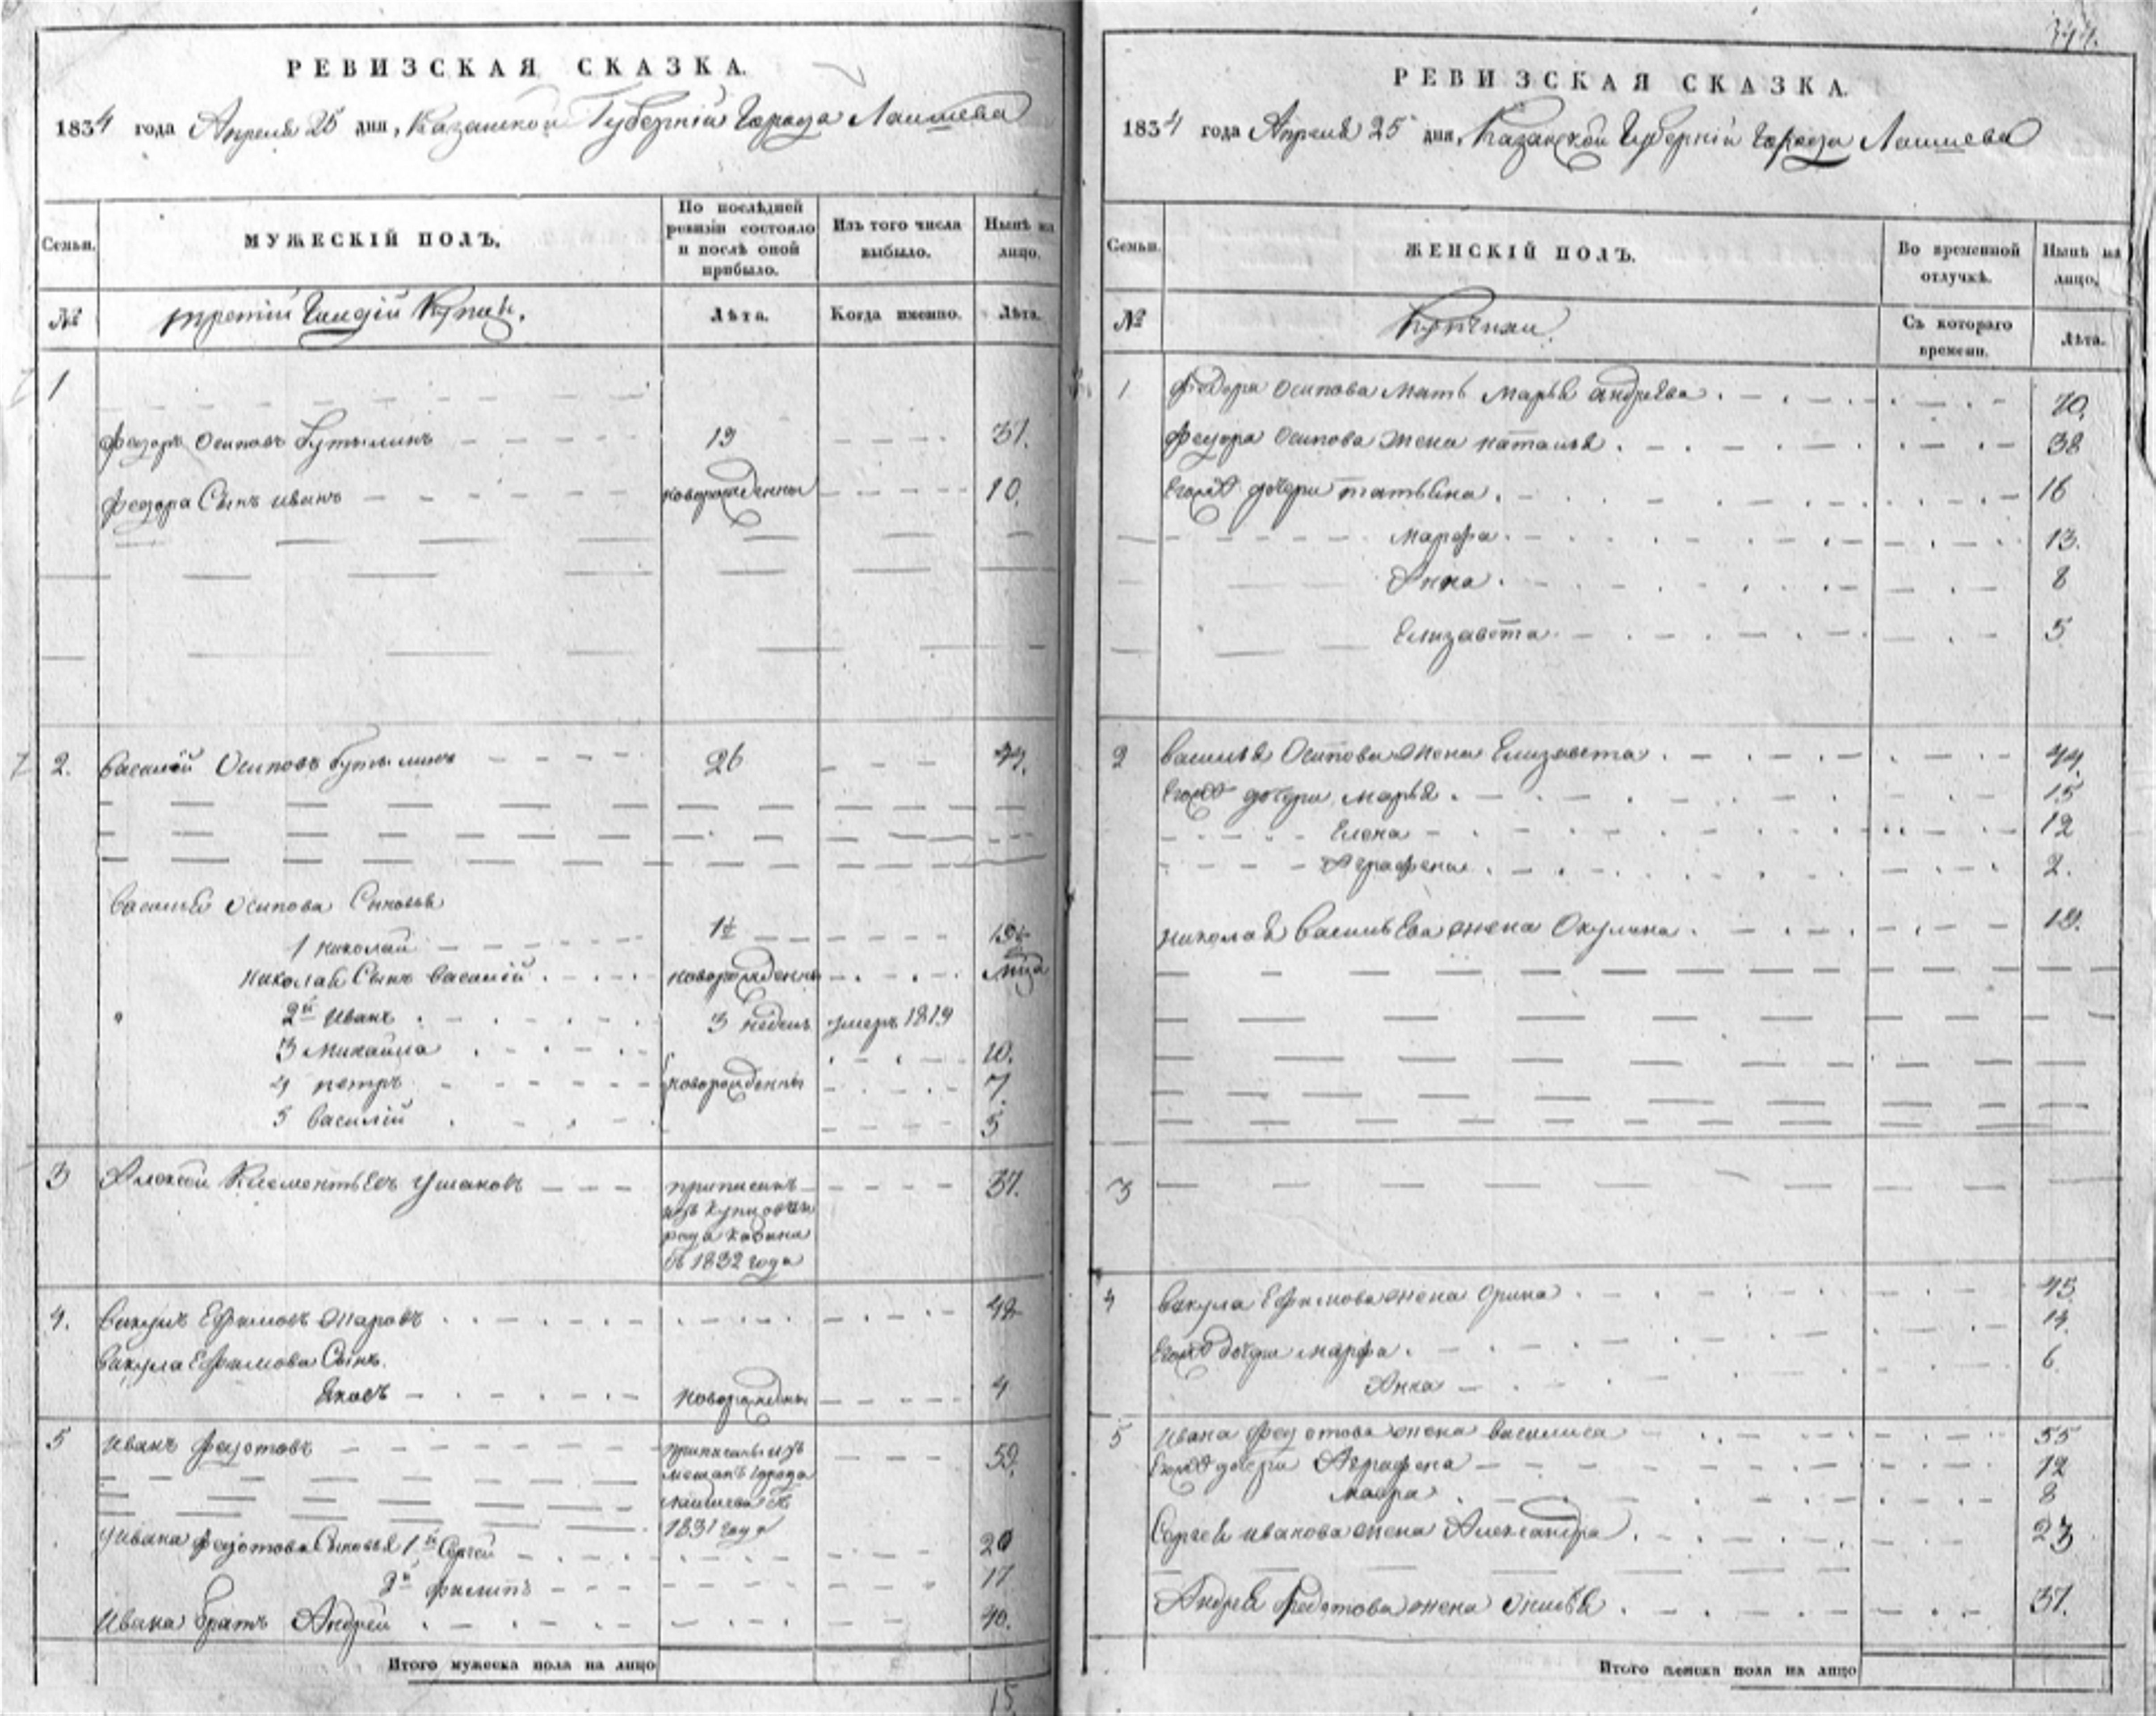 РЕВИЗСКАЯ СКАЗКА.
1834 года Апреля 25 дня, Казанской Губернiи Города Лаишева
Семьи.
МУЖЕСКIЙ ПОЛЪ.
По послѣдней ревизiи состояло и послѣ оной прибыло.
Изъ того числа выбыло.
Нынѣ на лицо.
№
третiй Гилдiи
Лѣта.
Когда именно.
Лѣта.
1
Федоръ Осиповъ Бутылинъ 19 37.
Федора Сынъ иванъ новорожденны 10.
2. Василiй Осиповъ Бутылинъ 26 44.
Василья Осипова Сыновья
1 николай 1½
николая Сынъ Василiй новорожденны
2й Иванъ 3 недел умеръ 1819
3 михайла 10.
4 петръ новорожденны 7.
5 Василiй 5
3 Алексей Клементьевъ Ушаковъ 37.
приписанъ
изъ купцовъ
рода Казана
въ 1832 года
4. Вакулъ Ефимовъ
Вакула Ефимова Сынъ.
Яковъ 4
5 иванъ Федотовъ 59.
приписаны изъ
мещанъ города
лаишева въ
1831 году
ивана Федотова Сыновья 1й Сергей 20
2й филипъ 17
ивана братъ Андрей 40.
Итого мужеска пола на лицо
15
344.
РЕВИЗСКАЯ СКАЗКА.
1834 года Апреля 25 дня, Казанской Губернiи Города Лаишева
Семьи.
ЖЕНСКIЙ ПОЛЪ.
Во временной отлучкѣ.
Нынѣ на лицо.
№
Съ котораго времени.
Лѣта.
1 федора осипова мать марья андрѣева 70.
федора осипова жена наталья 38
Его дочери татьяна 16
марфа 13.
Анна 8
Елизавета 5
2 василья Осипова жена Елизавета 44.
Его дочери марья 15
Елена 12
Аграфена 2.
николая васильева жена Окулина 19.
3
4 вакула Ефимова жена Орина 45
Его дочери марфа 14.
Анна 6
5 ивана федотова жена василиса 55
Его дочери Аграфена 12
мавра 8
Сергея иванова жена Александра 23
Андрея федотова жена 37.
Итого женска пола на лицо